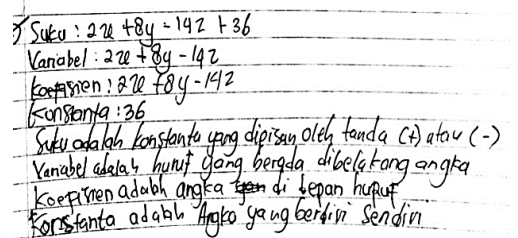 Suku : 2x + 8y - 14z + 36
Variabel : 2x + 8y - 14z
Koefisien : 2x + 8y - 14z
Konstanta : 36
Suku adalah konstanta yang dipisan oleh tanda (+) atau (-)
Variabel adalah huruf yang berada dibelakang angka
Koefisien adalah angka di depan huruf
Konstanta adalah Angka yang berdiri Sendiri